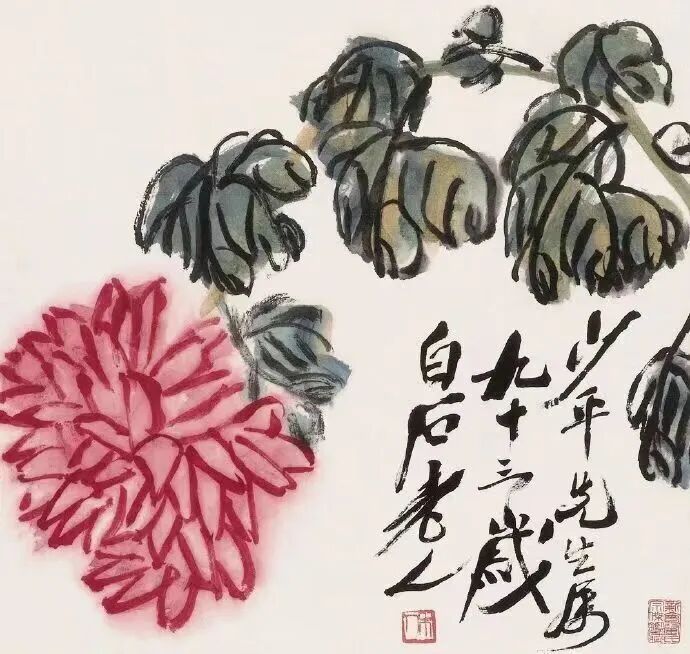 少平先生属
九十三歲
白石老人
木人